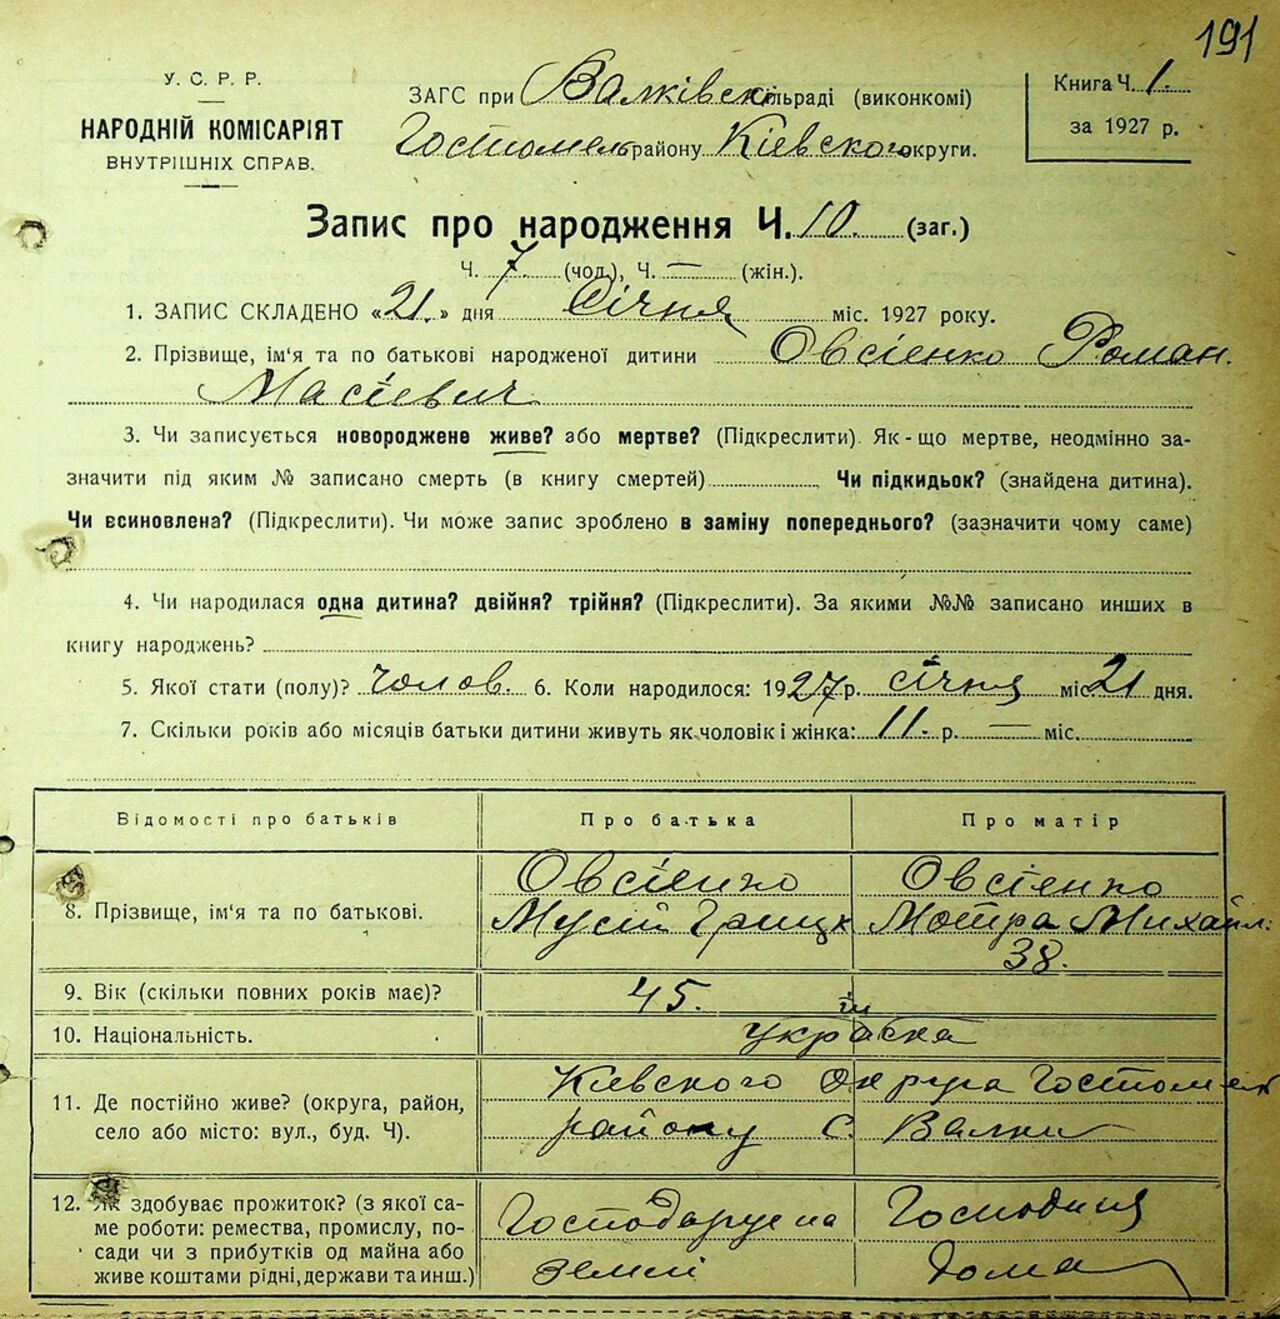 191
У. С. Р. Р.
НАРОДНІЙ КОМІСАРІЯТ
ВНУТРІШНІХ СПРАВ.
ЗАГС при Валківск сільраді (виконкомі)
Гостомель району Кіевского округи.
Книга Ч. 1.
за 1927 р.
Запис про народження Ч. 10. (заг.)
Ч. 7 (чол.), Ч. — (жін.).
1. ЗАПИС СКЛАДЕНО «21.» дня Січня міс. 1927 року.
2. Прізвище, ім‘я та по батькові народженої дитини Овсіенко Роман.
Масіевич
3. Чи записується новороджене живе? або мертве? (Підкреслити). Як-що мертве, неодмінно за-
значити під яким № записано смерть (в книгу смертей) Чи підкидьок? (знайдена дитина).
Чи всиновлена? (Підкреслити). Чи може запис зроблено в заміну попереднього? (зазначити чому саме)
4. Чи народилася одна дитина? двійня? трійня? (Підкреслити). За якими №№ записано инших в
книгу народжень?
5. Якої стати (полу)? Чолов. 6. Коли народилося: 1927 р. січня міс. 21 дня.
7. Скільки років або місяців батьки дитини живуть як чоловік і жінка: 11. р. — міс.
Відомості про батьків Про батька Про матір
8. Прізвище, ім‘я та по батькові. Овсіенко Овсіенко
Мусій Грицк Мотра Михайл:
38.
9. Вік (скільки повних років має)? 45.
10. Національність. Украска
11. Де постійно живе? (округа, район, село або місто: вул., буд. Ч). Кіевского Округа Гостомел
району С. Валки
12. Як здобуває прожиток? (з якої са-
ме роботи: ремества, промислу, по-
сади чи з прибутків од майна або
живе коштами рідні, держави та инш.)
Господаруе на
землі
Господиня
дома